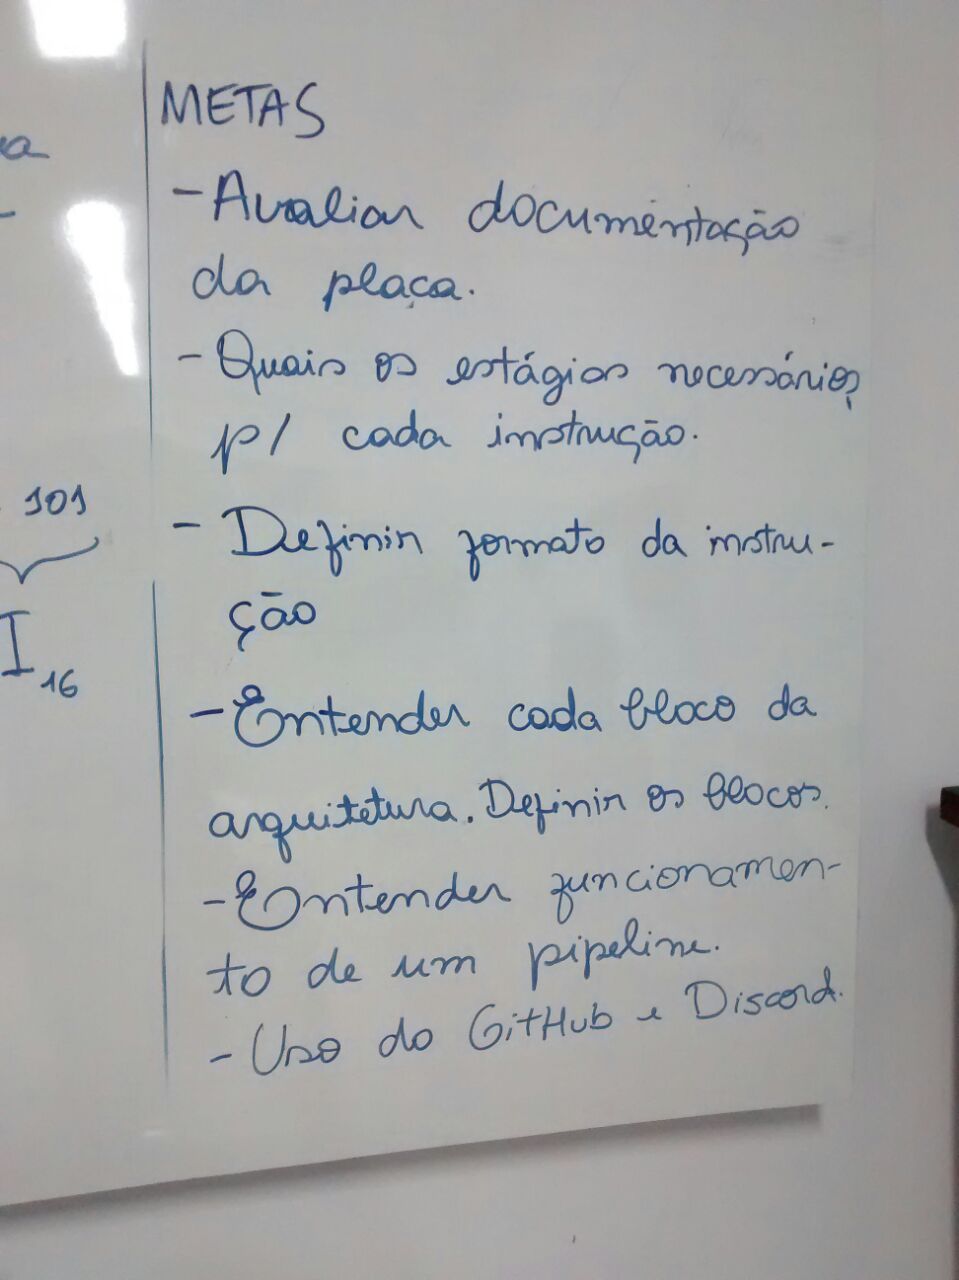 METAS
- Avaliar documentação
da placa.
- Quais os estágios necessários
p/ cada instrução.
- Definir formato da instru-
ção
- Entender cada bloco da
arquitetura. Definir os blocos.
- Entender funcionamen-
to de um pipeline.
- Uso do GitHub e Discord.
101
I16